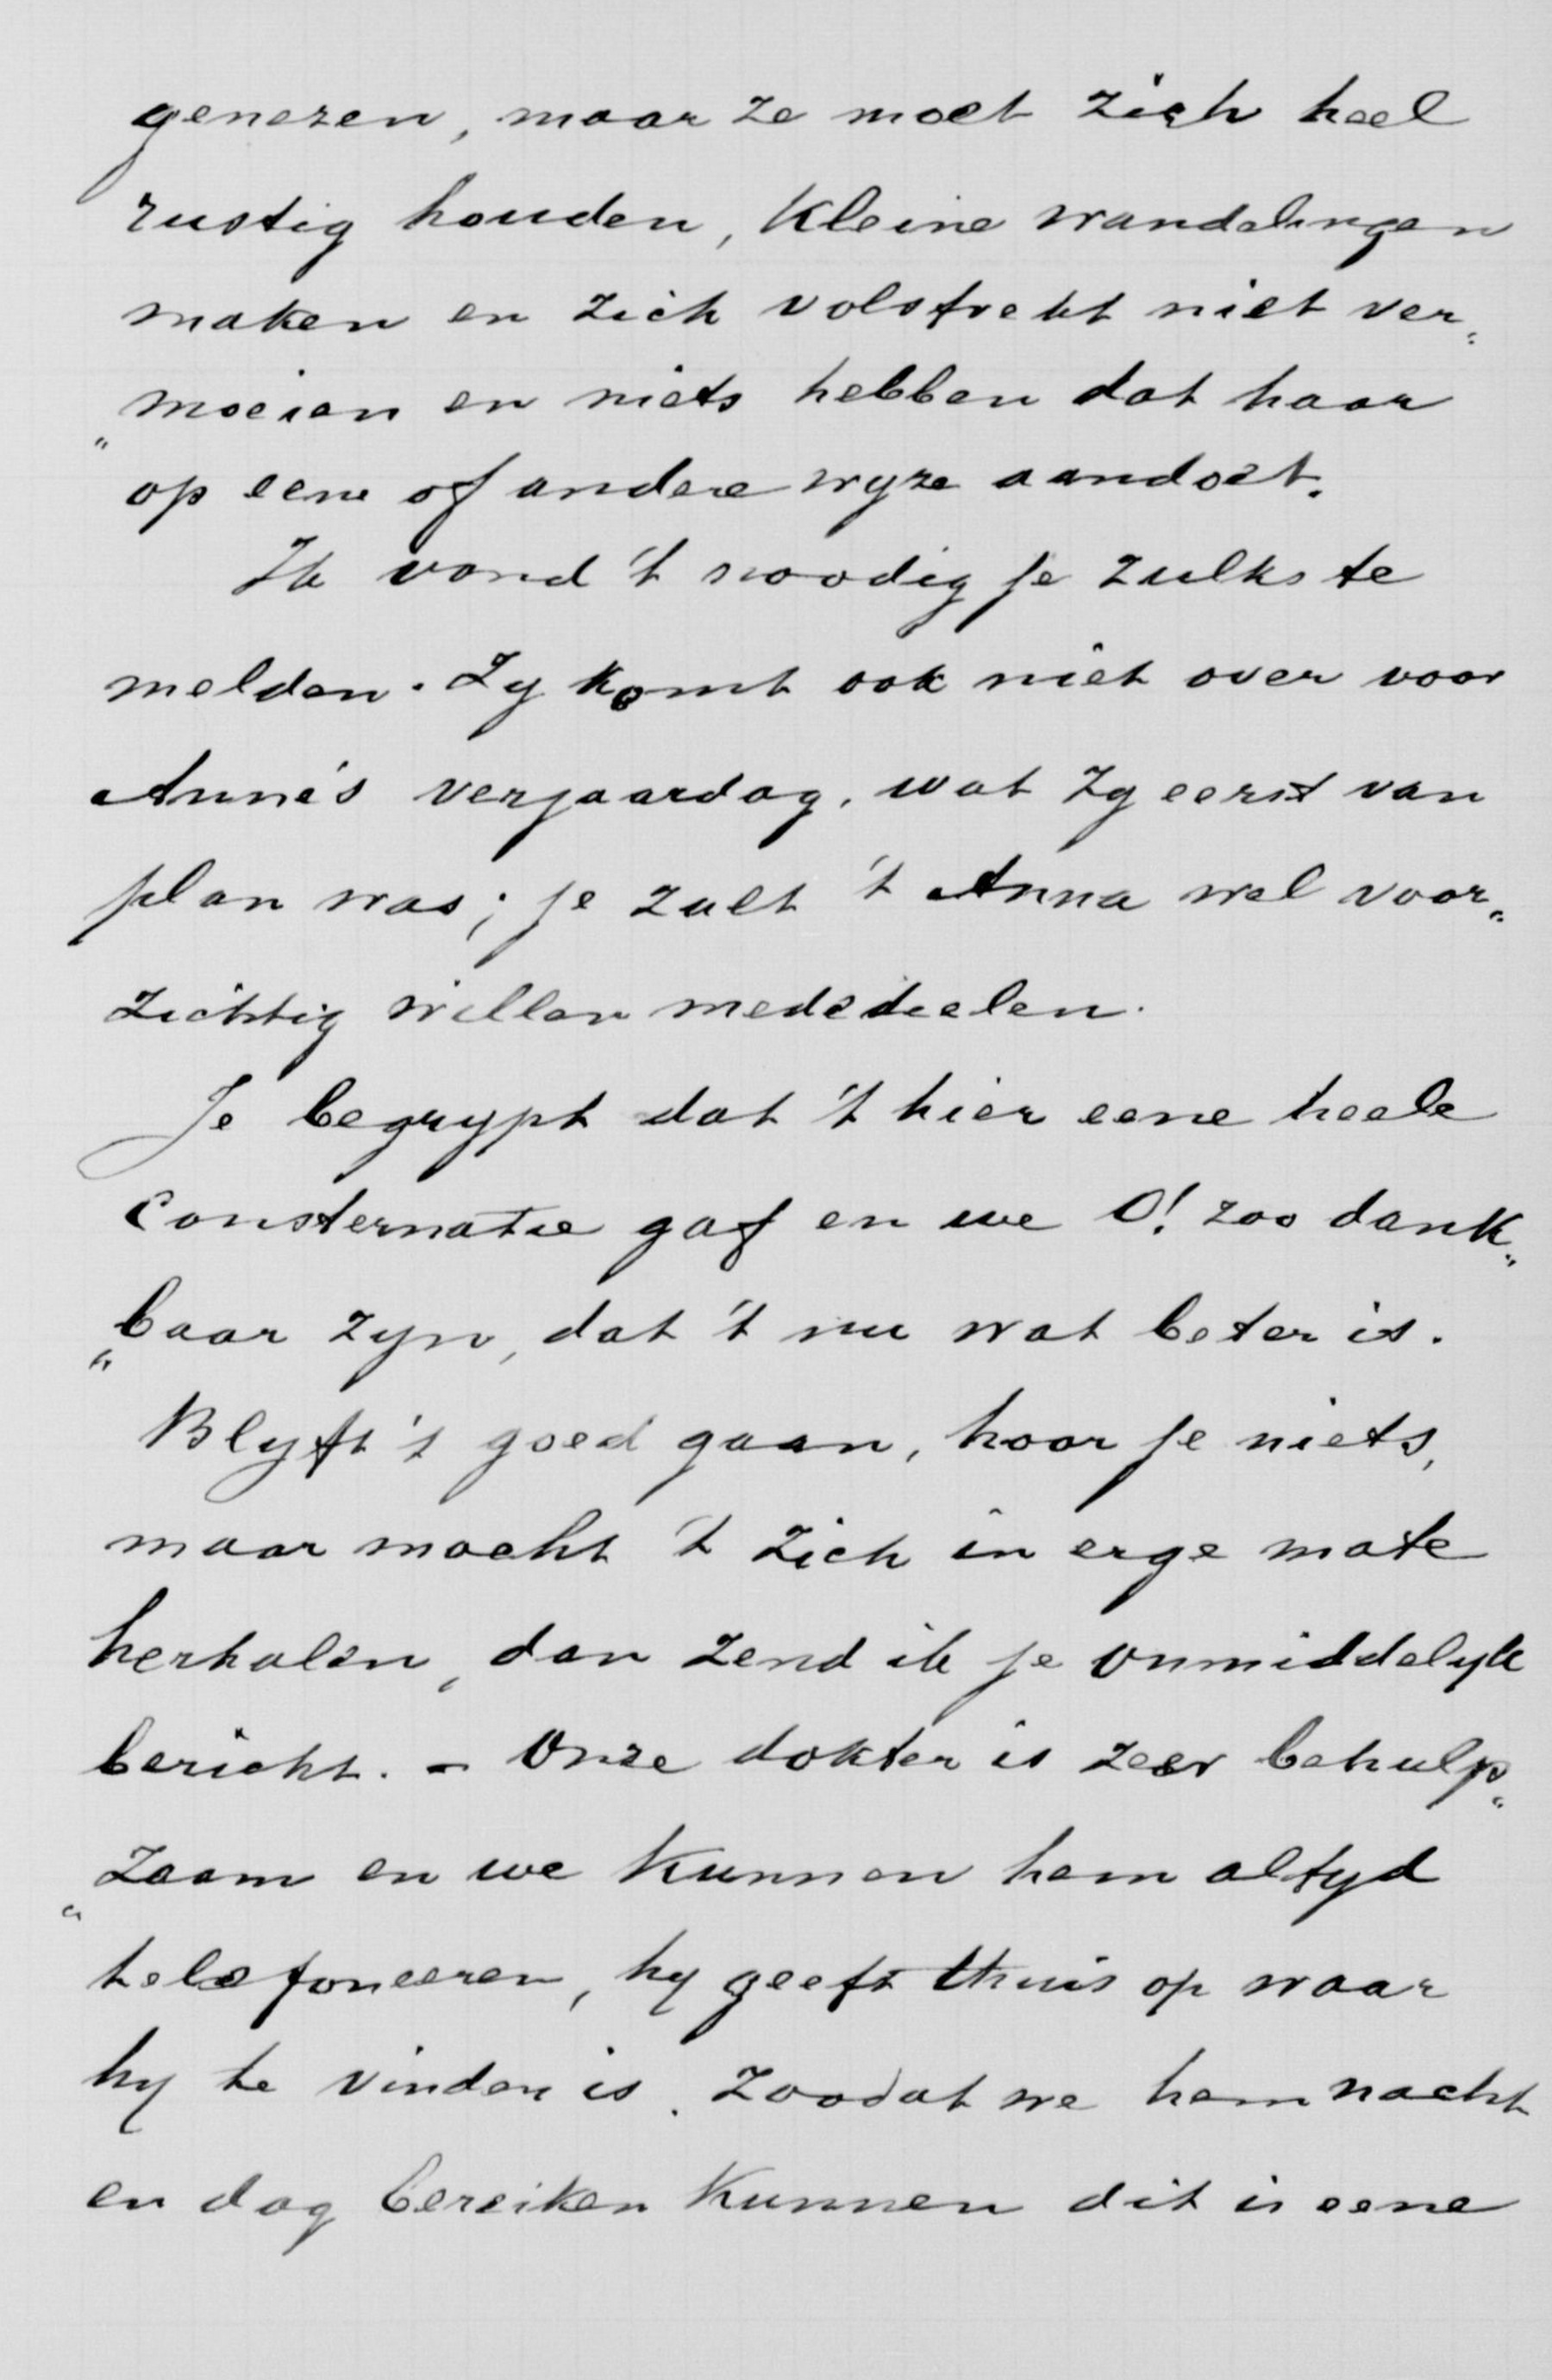 genezen, maar ze moet zich heel
rustig houden, kleine wandelingen
maken en zich volstrekt niet ver„
„moeien en niets hebben dat haar
op eene of andere wyze aandoet.
Ik vond 't noodig je zulks te
melden. Zy komt ook niet over voor
Anna's verjaardag, wat zy eerst van
plan was; je zult 't Anna wel voor„
zichtig willen mededeelen.
Je begrypt dat 't hier eene heele
consternatie gaf en we O! zoo dank„
„baar zyn, dat 't nu wat beter is.
Blyft 't goed gaan, hoor je niets,
maar mocht 't zich in erge mate
herhalen, dan zend ik je onmiddelyk
bericht. – Onze dokter is zeer behulp„
„zaam en we kunnen hem altyd
telefoneeren, hy geeft thuis op waar
hy te vinden is. Zoodat we hem nacht
en dag bereiken kunnen dit is eene